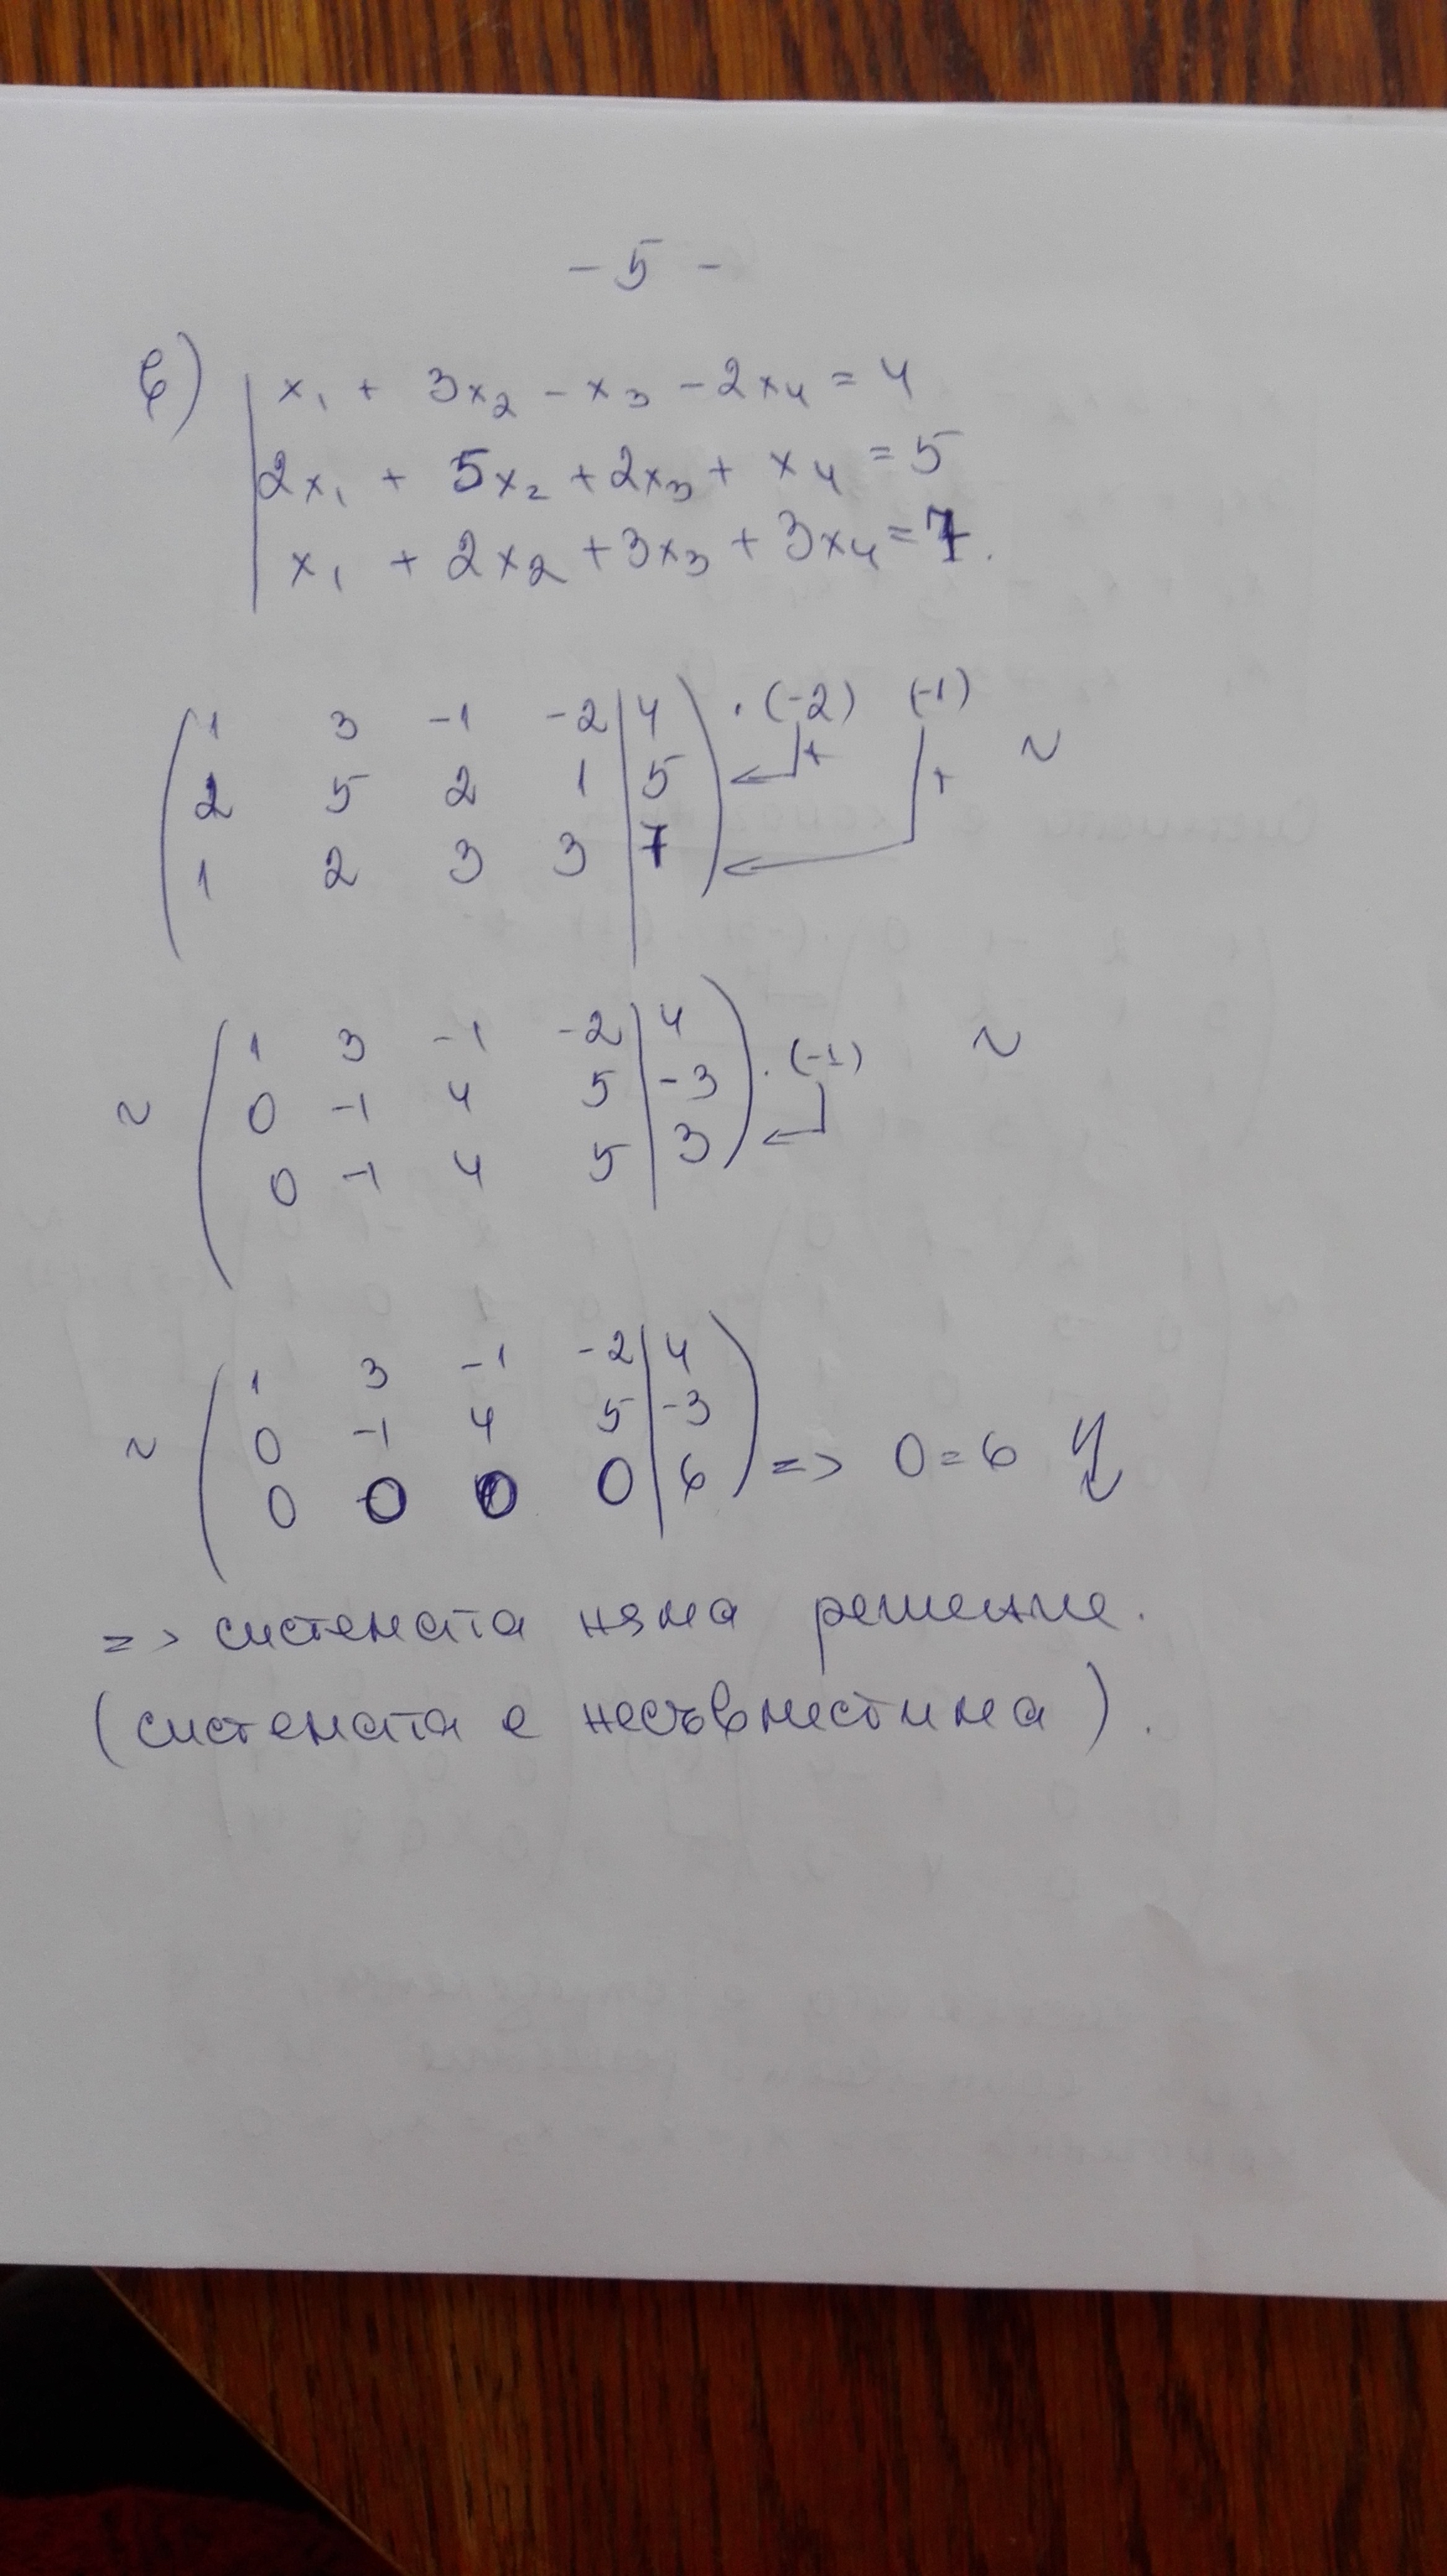 - 5 -
в) | x₁ + 3x₂ - x₃ - 2x₄ = 4
2x₁ + 5x₂ + 2x₃ + x₄ = 5
x₁ + 2x₂ + 3x₃ + 3x₄ = 7.
( 1 3 -1 -2 | 4 ) . (-2) (-1)
2 5 2 1 | 5 + + ~
1 2 3 3 | 7
~ ( 1 3 -1 -2 | 4 ) ~
0 -1 4 5 | -3 . (-1)
0 -1 4 5 | 3
~ ( 1 3 -1 -2 | 4 )
0 -1 4 5 | -3
0 0 0 0 | 6 => 0 = 6
=> системата няма решение.
(системата е несъвместима).